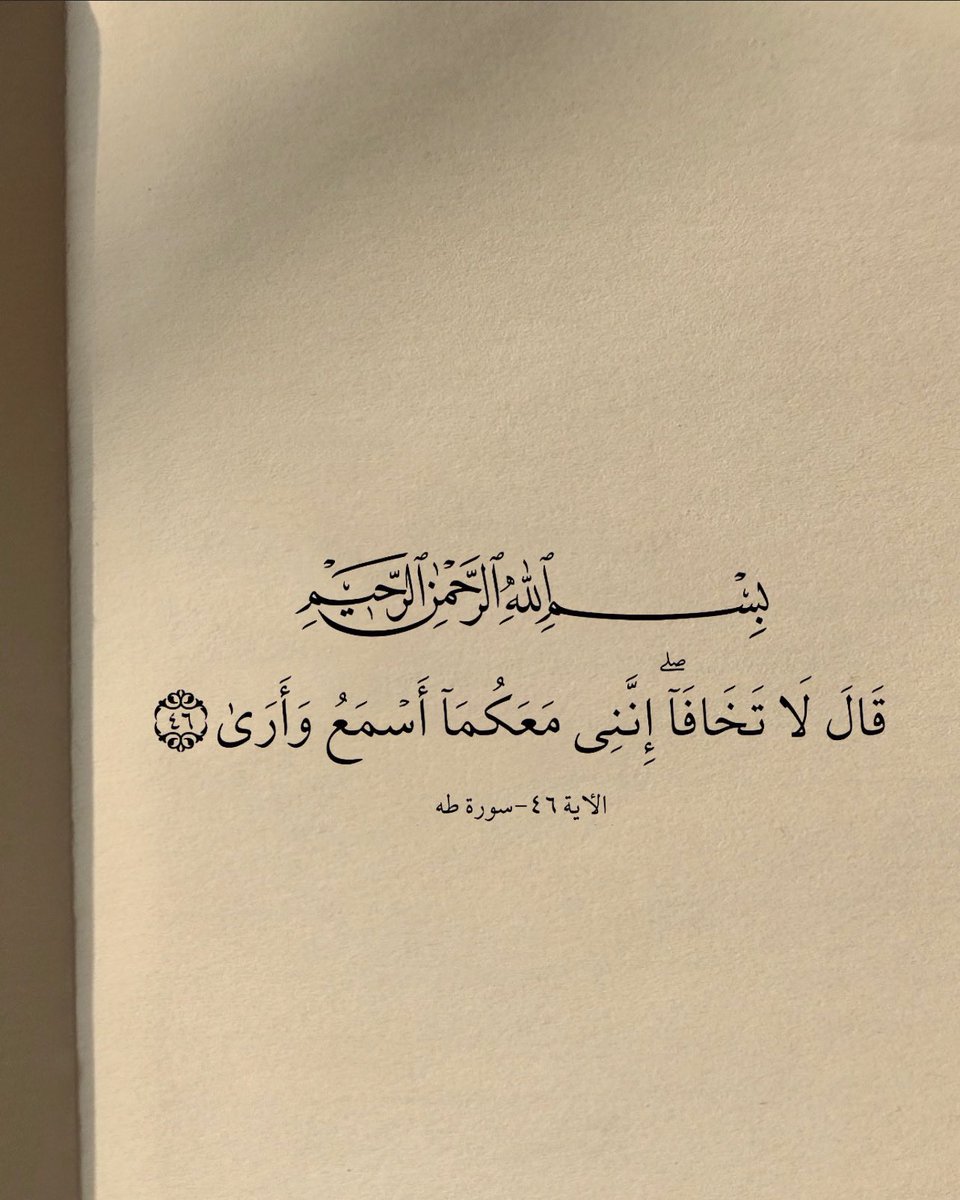 بِسْمِ ٱللَّهِ ٱلرَّحْمَٰنِ ٱلرَّحِيمِ
قَالَ لَا تَخَافَآ ۖ إِنَّنِى مَعَكُمَآ أَسْمَعُ وَأَرَىٰ ٤٦
الآية ٤٦-سورة طه